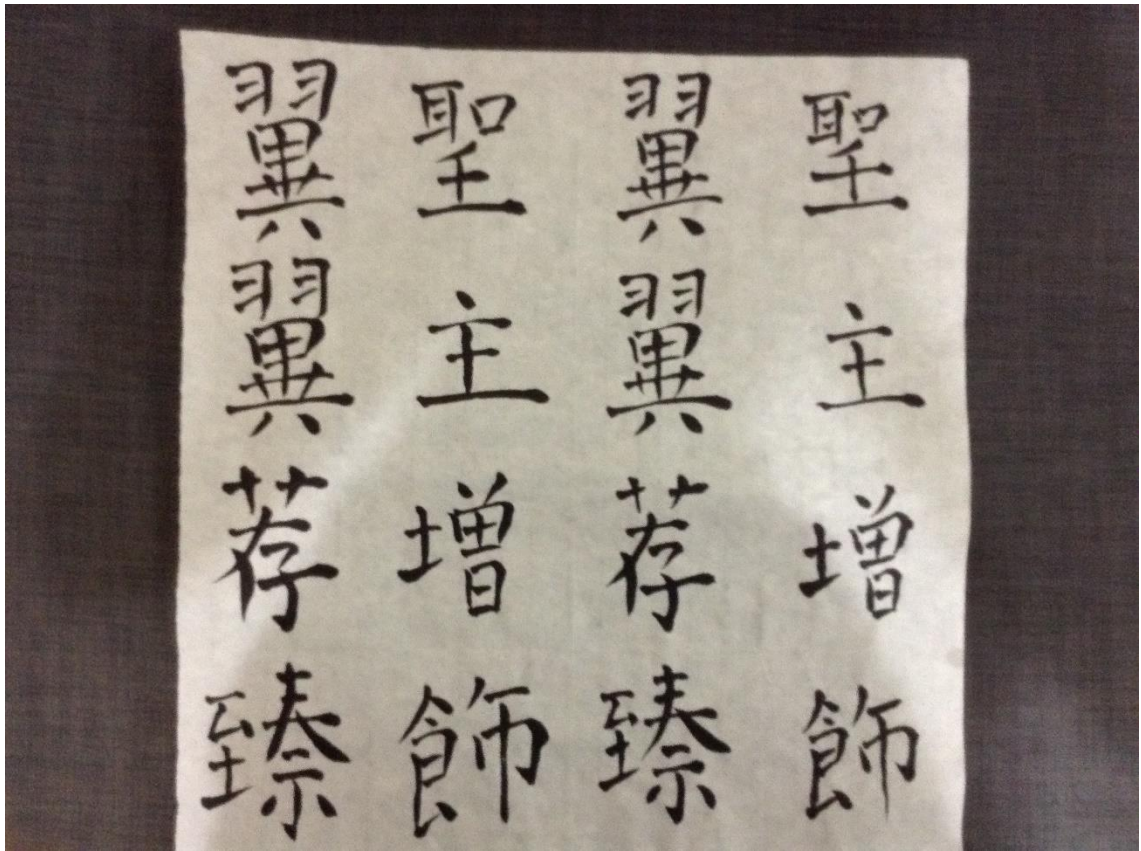 聖主增飾
翼翼荐臻
聖主增飾
翼翼荐臻